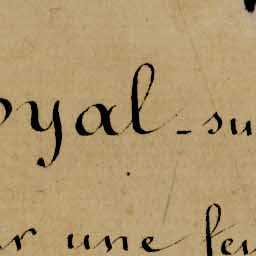 oyal - su
ur une feu